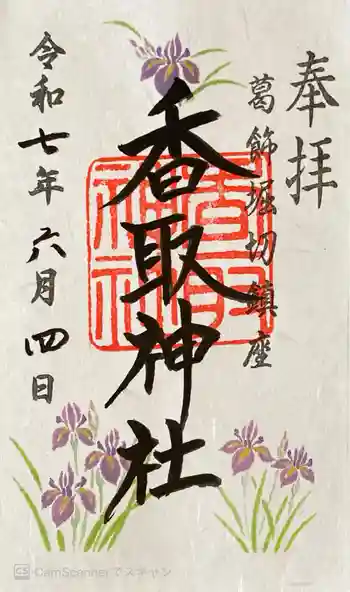 奉拝
葛飾堀切鎮座
香取神社
香取神社
令和七年六月四日
CS CamScanner でスキャン